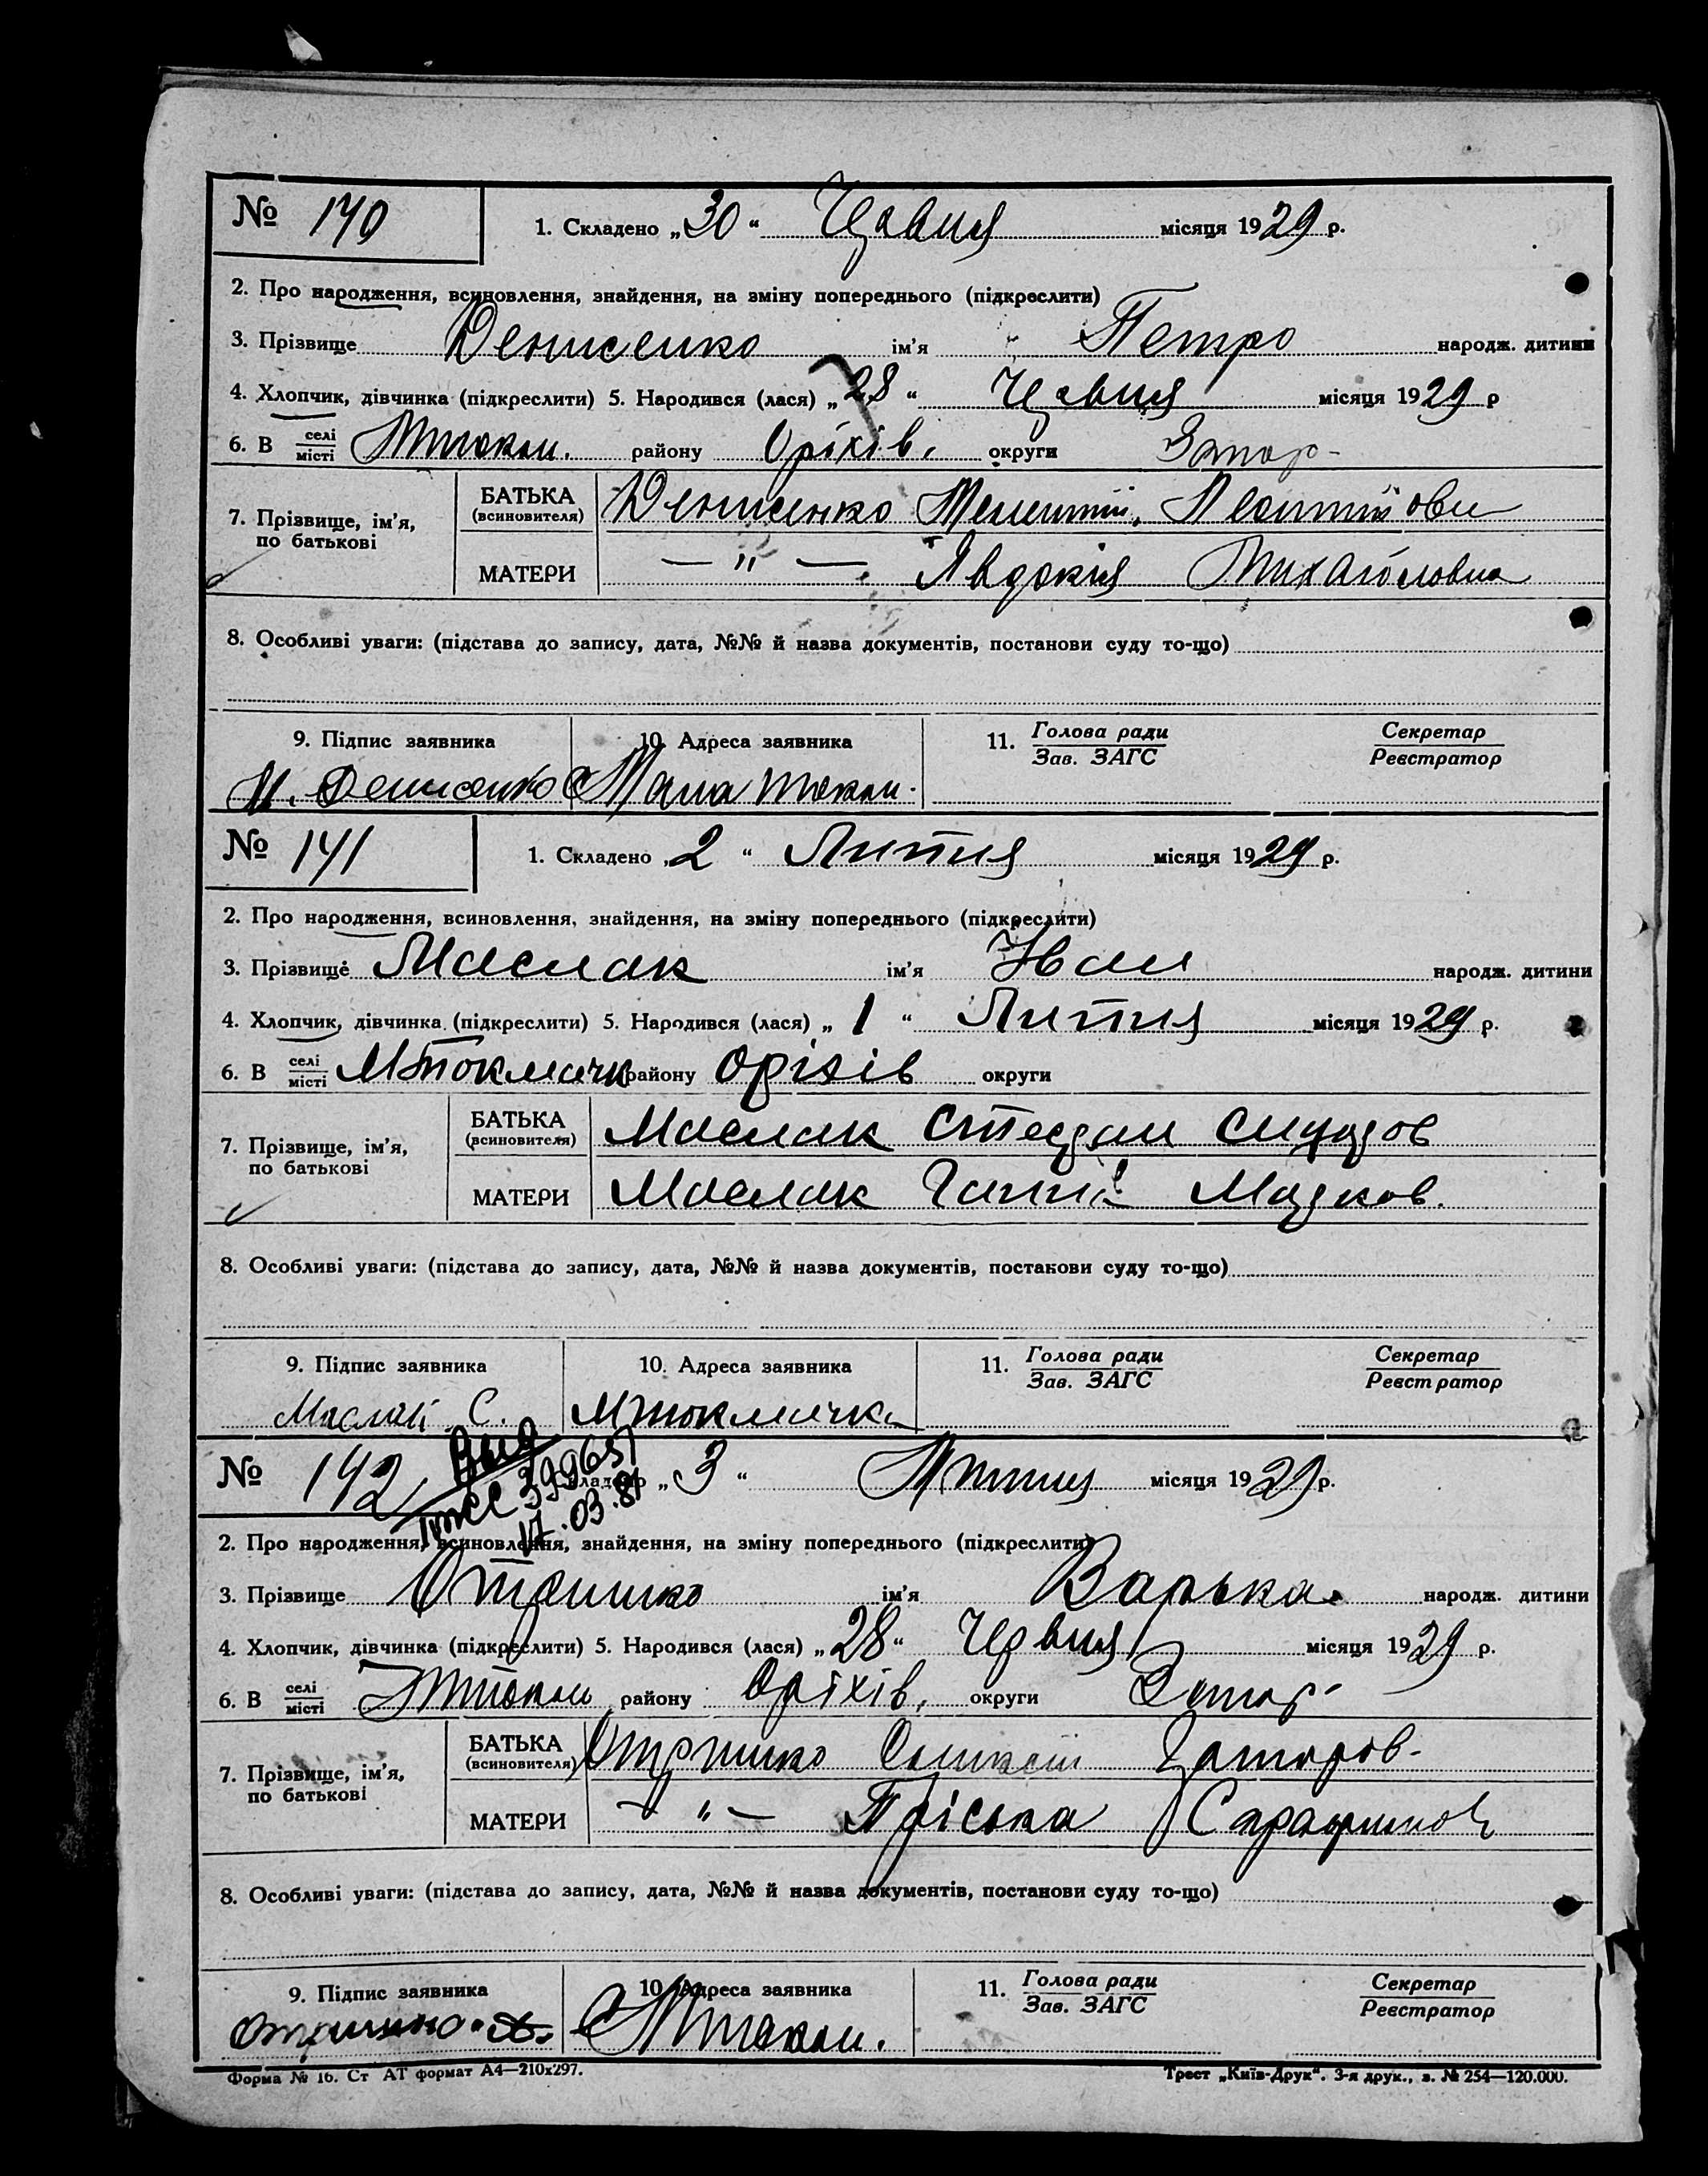 № 140 1. Складено „30“ Червня місяця 1929 р.
2. Про народження, всиновлення, знайдення, на зміну попереднього (підкреслити)
3. Прізвище Денисенко ім'я Петро народж. дитини
4. Хлопчик, дівчинка (підкреслити) 5. Народився (лася) „28“ Червня місяця 1929 р
6. В селі/місті Мтокм. району Оріхів. округи Запор-
7. Прізвище, ім'я, по батькові
БАТЬКА (всиновителя) Денисенко
МАТЕРИ — „ — Явдокія Михайловна
8. Особливі уваги: (підстава до запису, дата, №№ й назва документів, постанови суду то-що)
9. Підпис заявника 10. Адреса заявника 11. Голова ради/Зав. ЗАГС Секретар/Реєстратор
Денисенко Мала токм.
№ 141 1. Складено „2“ Липня місяця 1929 р.
2. Про народження, всиновлення, знайдення, на зміну попереднього (підкреслити)
3. Прізвище Маслак ім'я Иван народж. дитини
4. Хлопчик, дівчинка (підкреслити) 5. Народився (лася) „1“ Липня місяця 1929 р.
6. В селі/місті Мтокмачк району Оріхів округи
7. Прізвище, ім'я, по батькові
БАТЬКА (всиновителя) Маслак Степан
МАТЕРИ Маслак Ганна Марков.
8. Особливі уваги: (підстава до запису, дата, №№ й назва документів, постанови суду то-що)
9. Підпис заявника 10. Адреса заявника 11. Голова ради/Зав. ЗАГС Секретар/Реєстратор
С. Мтокмачка
№ 142 Складено „3“ Липня місяця 1929 р.
399651
17.03.81
2. Про народження, всиновлення, знайдення, на зміну попереднього (підкреслити)
3. Прізвище Отришко ім'я Варька народж. дитини
4. Хлопчик, дівчинка (підкреслити) 5. Народився (лася) „28“ Червня місяця 1929 р.
6. В селі/місті Мтокм району Оріхів. округи Запор-
7. Прізвище, ім'я, по батькові
БАТЬКА (всиновителя) Отришко
МАТЕРИ — „ — Пріська
8. Особливі уваги: (підстава до запису, дата, №№ й назва документів, постанови суду то-що)
9. Підпис заявника 10. Адреса заявника 11. Голова ради/Зав. ЗАГС Секретар/Реєстратор
Отришко Мтокм.
Форма № 16. Ст АТ формат А4—210х297. Трест „Київ-Друк“. 3-я друк., з. № 254—120.000.